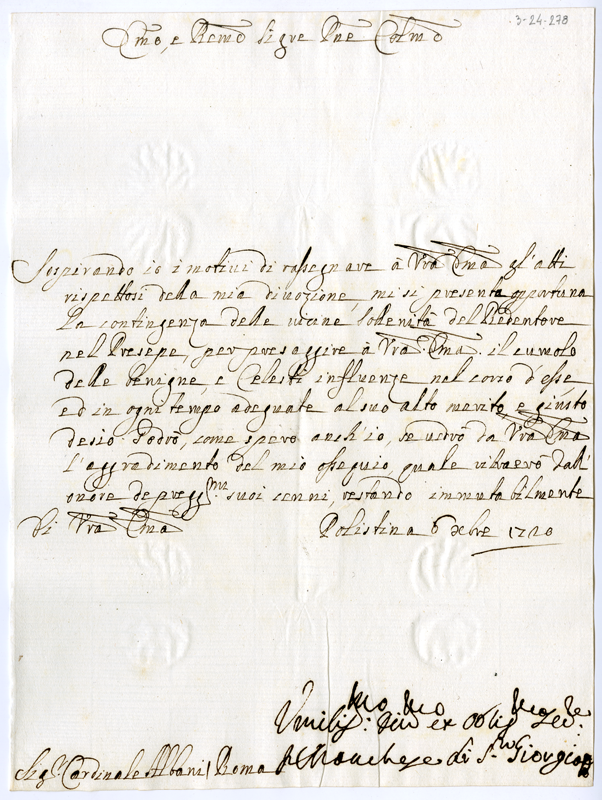 3-24-278
Emo, e Remo Sigre Pne Colmo
Sospirando io i motivi di rassegnare à Vra Ema gl'atti
rispettosi della mia divozione, mi si presenta opportuna
la contingenza delle vicine Sollenità del Redentore
nel Presepe, per presaggire à Vra Ema il cumolo
delle benigne, e Celesti influenze nel corso d'esse
ed in ogni tempo adeguate al suo alto merito, e giusto
desio. Godrò, come spero anch'io, se udrò da Vra Ema
l'aggradimento del mio ossequio, quale ritraerò dall'
onore de preggmi suoi cenni, restando immutabilmente
Di Vra Ema
Polistina 6 Xbre 1720
Umilismo: Devmo ex Obligmo Sere:
Il Marchese di Sn Giorgio
Sigr. Cardinale Albani / Roma